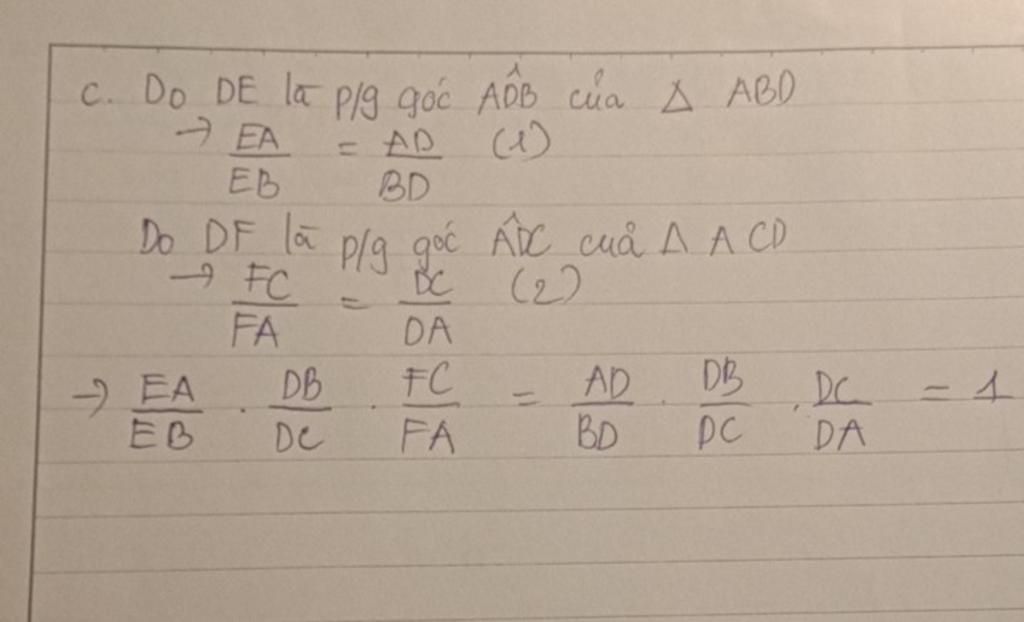 c. Do DE là p/g góc AD̂B của Δ ABD
→ EA/EB = AD/BD (1)
Do DF là p/g góc AD̂C cuả Δ ACD
→ FC/FA = DC/DA (2)
→ EA/EB . DB/DC . FC/FA = AD/BD . DB/DC . DC/DA = 1